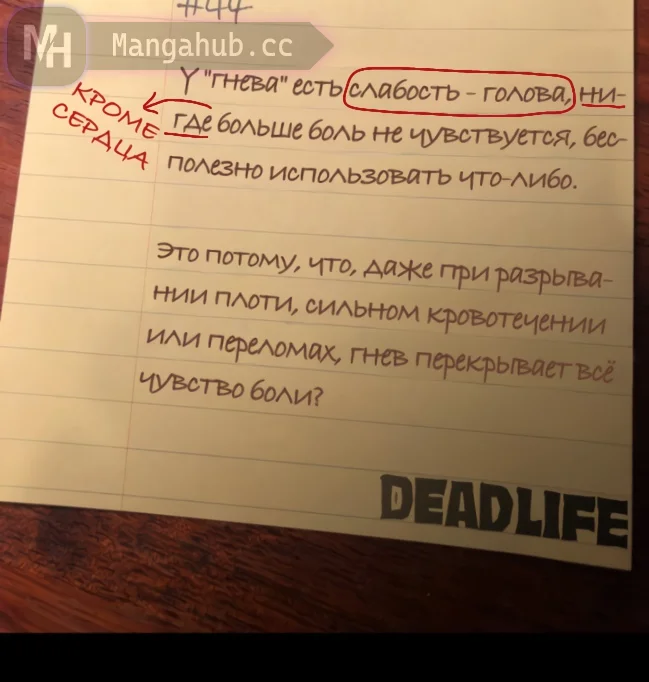 #44
MH Mangahub.cc
У "гнева" есть слабость - голова, ни-
где больше боль не чувствуется, бес-
полезно использовать что-либо.
КРОМЕ
СЕРДЦА
Это потому, что, даже при разрыва-
нии плоти, сильном кровотечении
или переломах, гнев перекрывает всё
чувство боли?
DEADLIFE